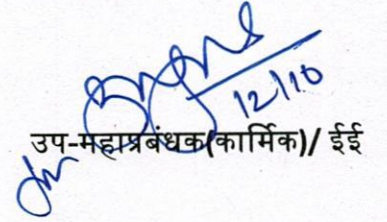 12/10
उप-महाप्रबंधक(कार्मिक)/ ईई